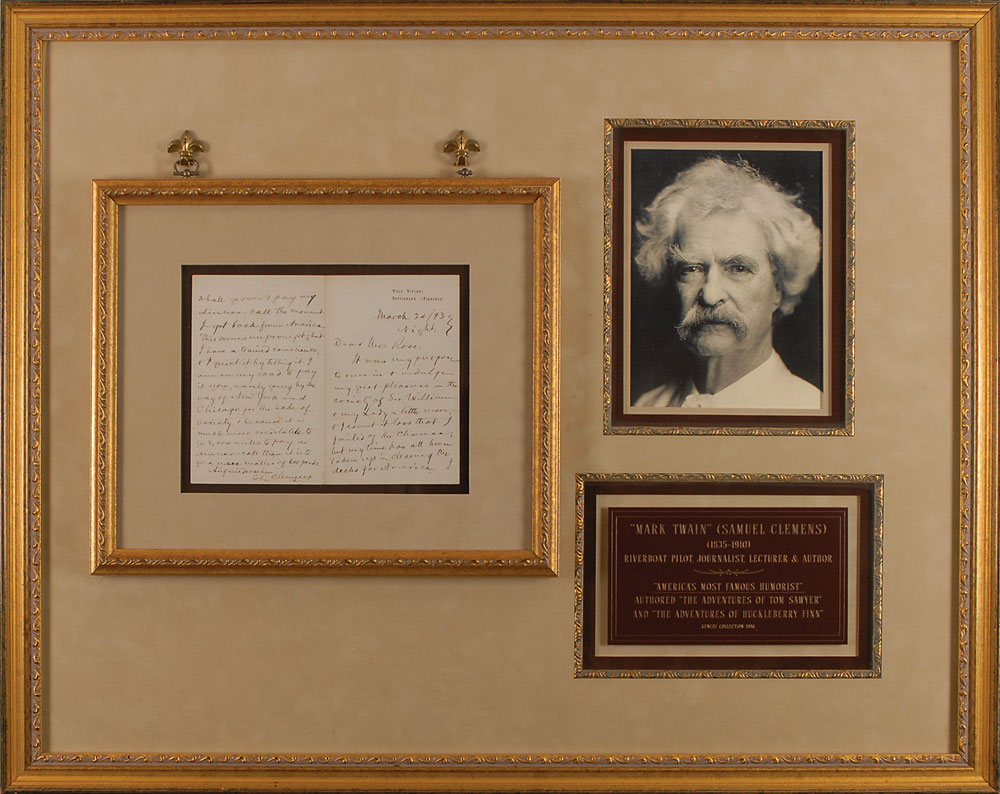 VILLA VIVIANI
SETTIGNANO (FLORENCE)
March 20/93
Night.
Dear Mrs. Ross:
It was my purpose
to run in & indulge in
my great pleasure in the
society of Sir William
& my Lady a little more,
& I count it loss that I
failed of the chance;
but my time has all been
taken up in clearing the
decks for America. I
shall go over & pay my
dinner-call the moment
I get back from America.
This seems unprompt, but
I have a trained conscience,
& I quiet it by telling it I
am on my road to pay
it now, merely going by the
way of New York and
Chicago for the sake of
variety & because it is
much more creditable to
go miles to pay a
dinner-call than it is to
go a mere matter of
Auf wiedersehen
SL Clemens
"MARK TWAIN" (SAMUEL CLEMENS)
(1835-1910)
RIVERBOAT PILOT, JOURNALIST, LECTURER & AUTHOR
"AMERICA'S MOST FAMOUS HUMORIST"
AUTHORED "THE ADVENTURES OF TOM SAWYER"
AND "THE ADVENTURES OF HUCKLEBERRY FINN"
COLLECTION